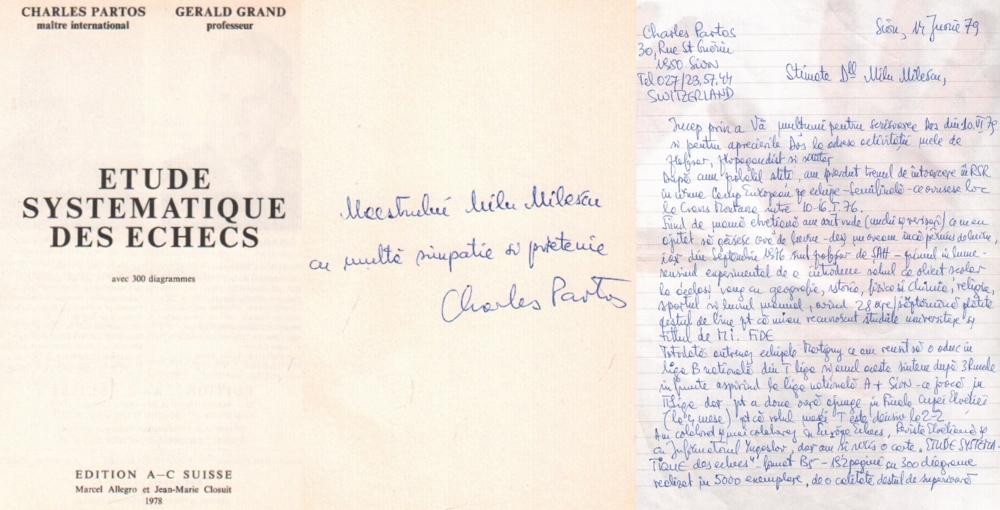 CHARLES PARTOS
maître international
GERALD GRAND
professeur
ETUDE
SYSTEMATIQUE
DES ECHECS
avec 300 diagrammes
EDITION A—C SUISSE
Marcel Allegro et Jean-Marie Closuit
1978
Maestrului Milu Milescu
cu multă simpatie si prietenie
Charles Partos
Charles Partos
30, Rue St Guérin
1950 Sion
Tel 027/23.57.44
SWITZERLAND
Sion, 14 Junie 79
Stimate Dll Milu Milescu,
Incep prin a Vă multumi pentru scrisoarea Dvs din 10.VI 79
si pentru aprecierile Dvs la adresa activității mele de
profesor, propagandist si
După am am pierdut trenul de intoarcere in RSR
in urma Camp European pe echipe - semifinală - ce avusese loc
la Crans Montana intre 10-16.I.76.
Fiind de mamă elvețiană am avut unde
să găsesc de lucru
iar din Septembrie 1976 sunt profesor de SAH - primul in lume -
experimental de a introduce sahul ca obiect scolar
la acelasi rang cu geografia, istoria, fizica si chimia, religia,
sportul si lucrul manual, având 28 ore/săptămână plătite
destul de bine pt că mi-au recunoscut studiile universitare si
titlul de M.I. FIDE
Totodată antrenez echipele Martigny ce am reusit să o aduc in
liga B natională din I liga si anul acesta suntem după 3 runde
in frunte aspirând la liga natională A + Sion - ce joacă in
II liga dar pt a doua oară ajunge in Finala Cupei Elveției
(la 4 mese) pt că
Am colaborat si mai colaborez cu Europe Echecs, Revista Elvețiană si
cu Informatorul Iugoslav, dar am si scris o carte „ETUDE SYSTEMA-
TIQUE des echecs", format B5 - 192 pagini cu 300 diagrame
realizat in 5000 exemplare, de o calitate destul de superioară